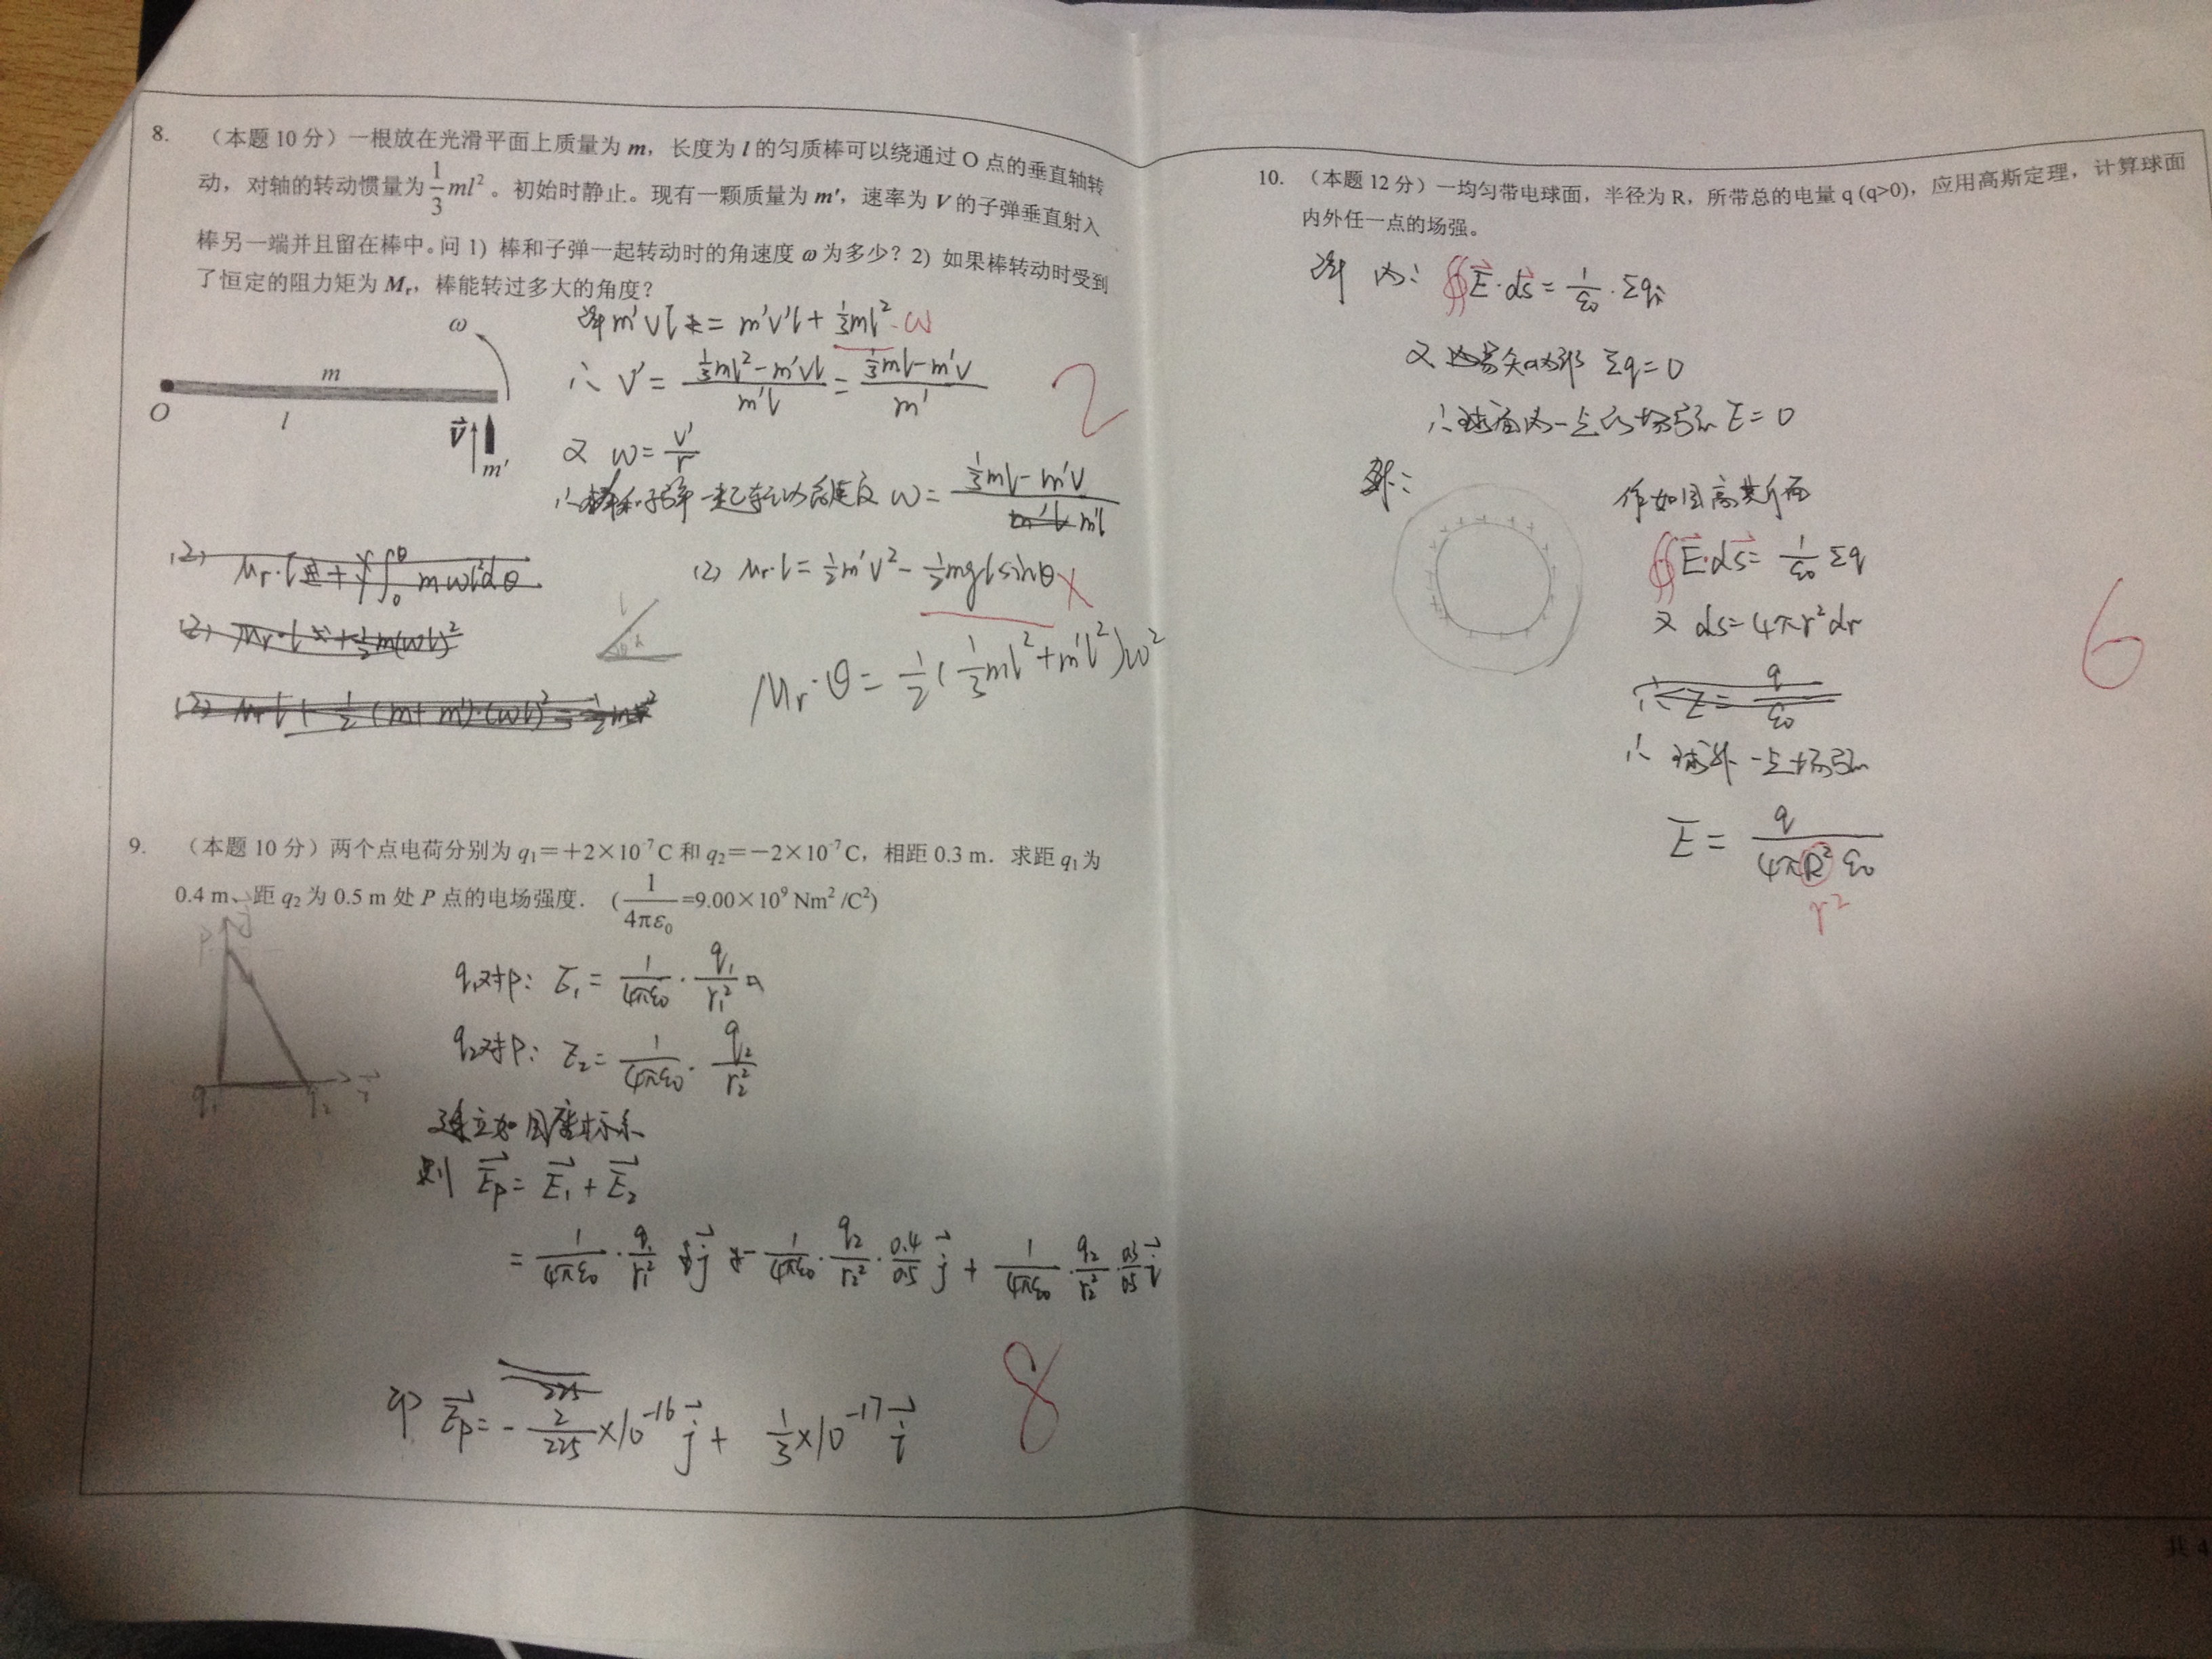 8. （本题 10 分）一根放在光滑平面上质量为 m，长度为 l 的匀质棒可以绕通过 O 点的垂直轴转
动，对轴的转动惯量为 1/3 ml²。初始时静止。现有一颗质量为 m′，速率为 V 的子弹垂直射入
棒另一端并且留在棒中。问 1）棒和子弹一起转动时的角速度 ω 为多少？2）如果棒转动时受到
了恒定的阻力矩为 Mr，棒能转过多大的角度？
ω
m
O
l
V⃗
m′
解 m′Vl = m′V′l + 1/3 ml²·ω
∴ V′ = (1/3 ml² - m′Vl)/(m′l) = (1/3 ml - m′V)/m′
2
又 ω = V′/r
∴ 棒和子弹一起转动角速度 ω = (1/3 ml - m′V)/(m′l)
(2) Mr·l = 1/2 m′V² - 1/2 mgl sinθ ×
Mr·θ = 1/2 (1/3 ml² + m′l²)ω²
9. （本题 10 分）两个点电荷分别为 q₁＝＋2×10⁻⁷C 和 q₂＝－2×10⁻⁷C，相距 0.3 m．求距 q₁ 为
0.4 m、距 q₂ 为 0.5 m 处 P 点的电场强度．(1/(4πε₀) =9.00×10⁹ Nm² /C²)
P
j⃗
q₁
q₂
i⃗
q₁对P: E₁ = 1/(4πε₀) · q₁/r₁²
q₂对P: E₂ = 1/(4πε₀) · q₂/r₂²
建立如图坐标系
则 E⃗p = E⃗₁ + E⃗₂
= 1/(4πε₀) · q₁/r₁² j⃗ - 1/(4πε₀) · q₂/r₂² · 0.4/0.5 j⃗ + 1/(4πε₀) · q₂/r₂² · 0.3/0.5 i⃗
即 E⃗p = - 2/225 ×10⁻¹⁶ j⃗ + 1/3 ×10⁻¹⁷ i⃗
8
10. （本题 12 分）一均匀带电球面，半径为 R，所带总的电量 q (q>0)，应用高斯定理，计算球面
内外任一点的场强。
解 内: ∯E⃗·ds⃗ = 1/ε₀ · Σqᵢ
Σq = 0
∴ 球面内一点的场强 E = 0
外:
作如图高斯面
∯E⃗·ds⃗ = 1/ε₀ Σq
又 ds = 4πr²dr
∴ 球外一点场强
E = q/(4πR²ε₀)
r²
6
共 4